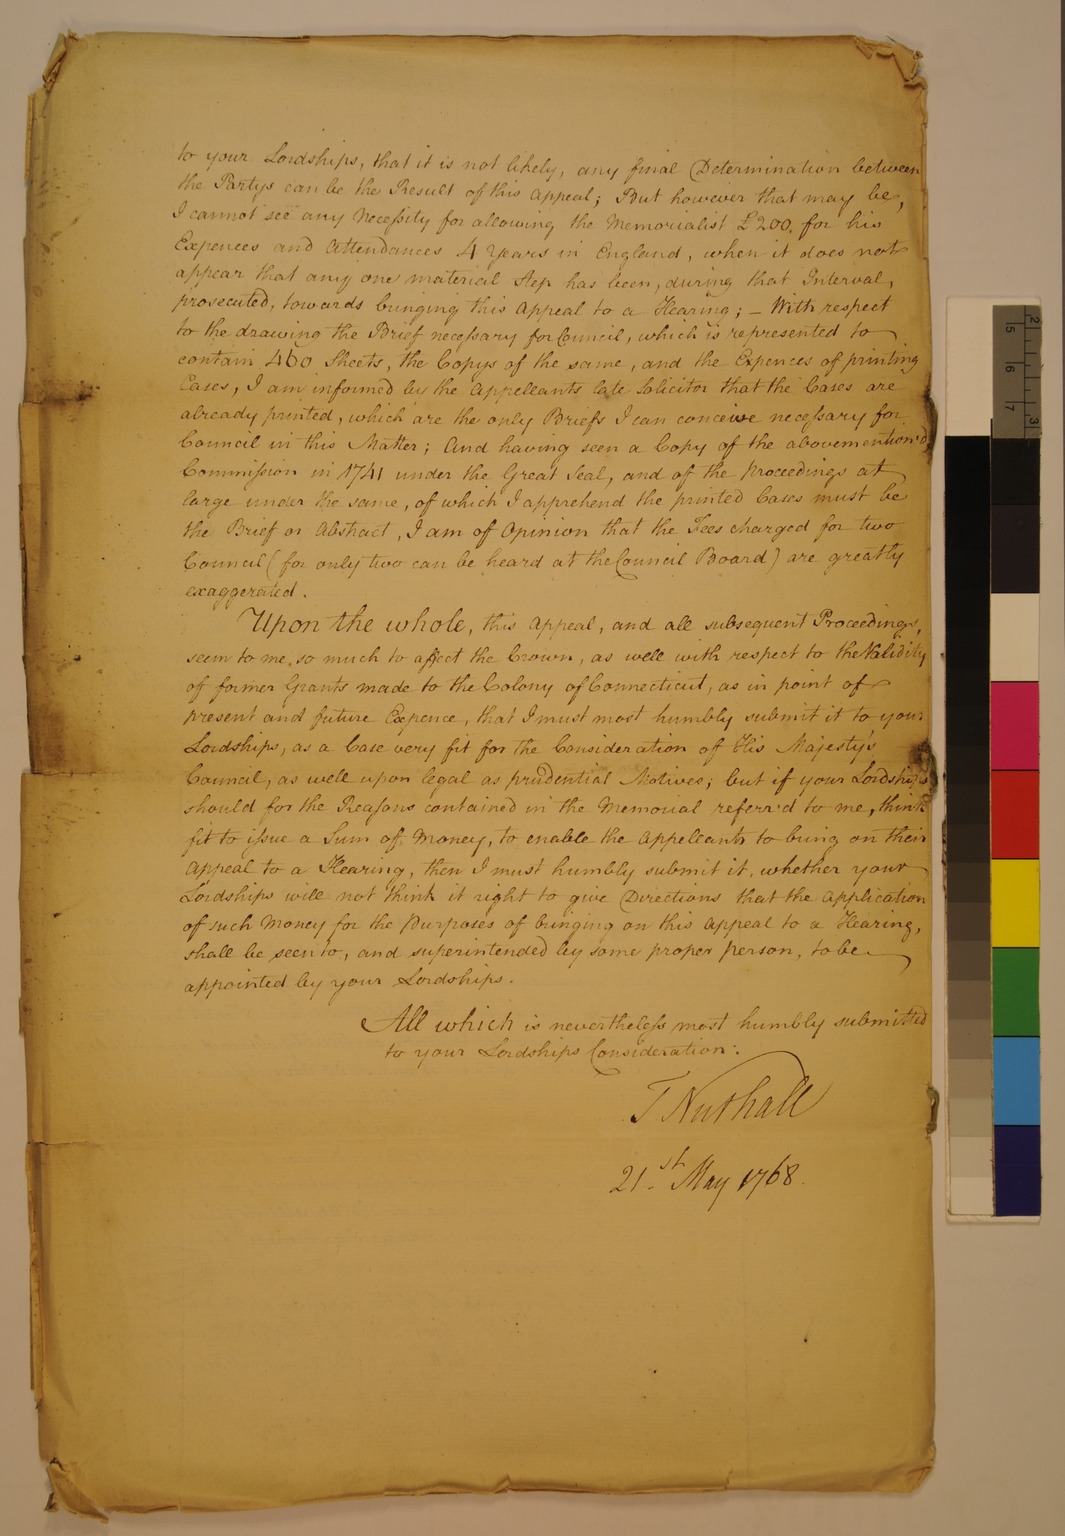 to your Lordships, that it is not likely, any final Determination between
the Partys can be the Result of this Appeal; But however that may be,
I cannot see any Necessity for allowing the Memorialist £200. for his
Expences and Attendances 4 Years in England, when it does not
appear that any one material Step has been, during that Interval,
prosecuted, towards bringing this Appeal to a Hearing; – With respect
to the drawing the Brief necessary for Council, which is represented to
contain 460 Sheets, the Copys of the same, and the Expences of printing
Cases, I am informed by the Appellants late Solicitor that the Cases are
already printed, which are the only Briefs I can conceive necessary for
Council in this Matter; And having seen a Copy of the abovemention'd
Commission in 1741 under the Great Seal, and of the Proceedings at
large under the same, of which I apprehend the printed Cases must be
the Brief or Abstract, I am of Opinion that the Fees charged for two
Council (for only two can be heard at the Council Board) are greatly
exaggerated.
Upon the whole, this Appeal, and all subsequent Proceedings,
seem to me, so much to affect the Crown, as well with respect to the Validity
of former Grants made to the Colony of Connecticut, as in point of
present and future Expence, that I must most humbly submit it to your
Lordships, as a Case very fit for the Consideration of His Majesty's
Council, as well upon legal as prudential Motives; but if your Lordships
should for the Reasons contained in the Memorial referr'd to me, think
fit to issue a Sum of Money, to enable the Appellants to bring on their
Appeal to a Hearing, then I must humbly submit it, whether your
Lordships will not think it right to give Directions that the Application
of such Money for the Purposes of bringing on this Appeal to a Hearing,
shall be seen to, and superintended by some proper Person, to be
appointed by your Lordships.
All which is nevertheless most humbly submitted
to your Lordships Consideration:
T Nuthall
21st May 1768.
5
6
7
2
3